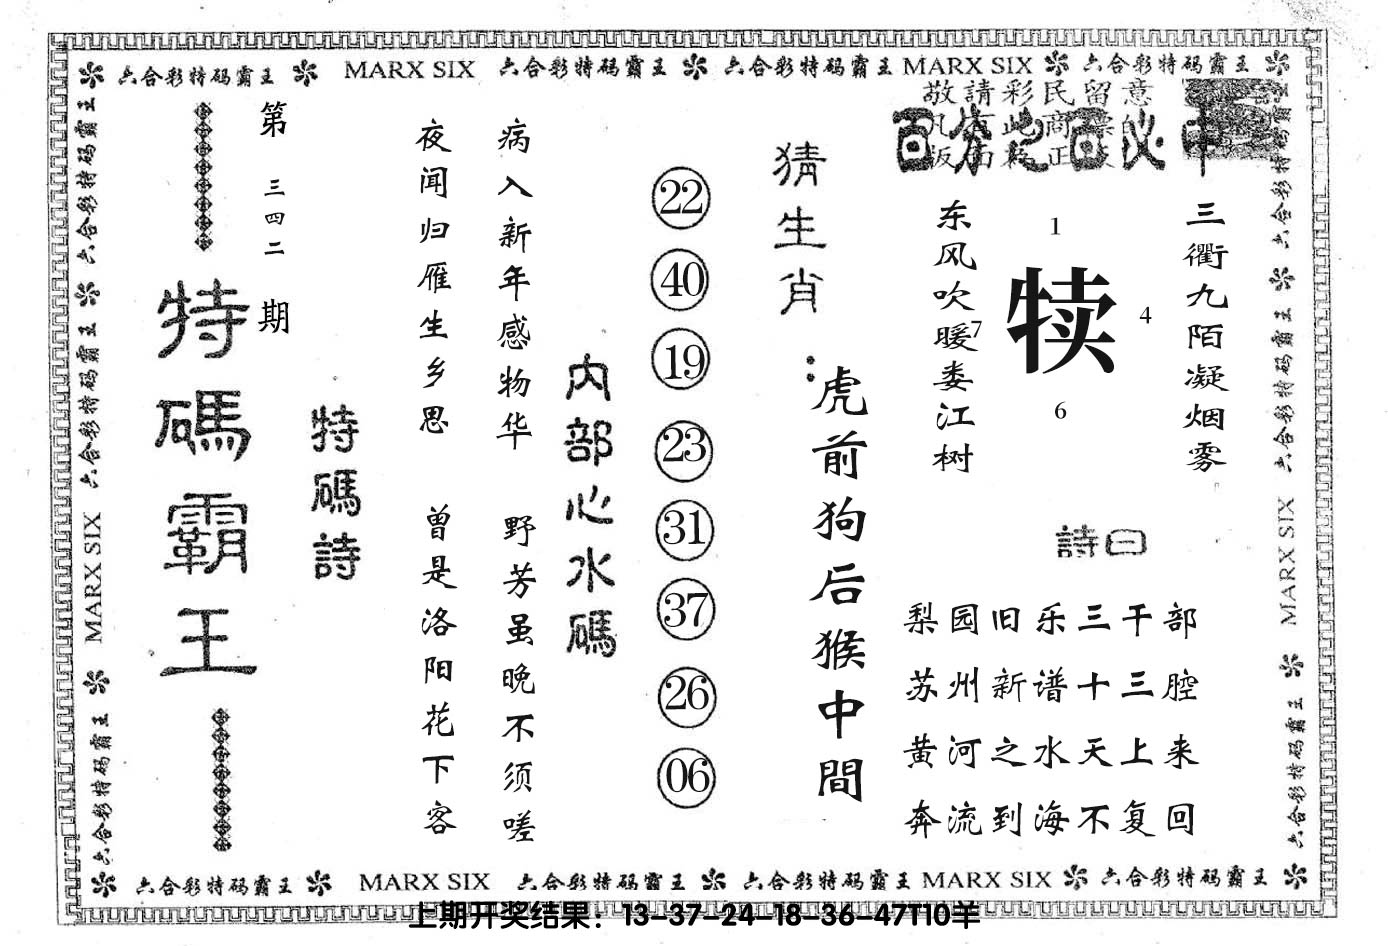 六合彩特码霸王 MARX SIX 六合彩特码霸王 六合彩特码霸王 MARX SIX 六合彩特码霸王
敬請彩民留意
百分之百必中
三衢九陌凝烟雾
东风吹暖娄江树
1
7
犊
4
6
詩曰
梨园旧乐三千部
苏州新谱十三腔
黄河之水天上来
奔流到海不复回
猜生肖：
虎前狗后猴中間
22
40
19
23
31
37
26
06
内部心水碼
病入新年感物华 野芳虽晚不须嗟
夜闻归雁生乡思 曾是洛阳花下客
特碼詩
第三四二期
特碼霸王
六合彩特码霸王 六合彩特码霸王 MARX SIX 六合彩特码霸王
六合彩特码霸王 六合彩特码霸王 MARX SIX 六合彩特码霸王
六合彩特码霸王 MARX SIX 六合彩特码霸王 六合彩特码霸王 MARX SIX 六合彩特码霸王
上期开奖结果：13-37-24-18-36-47T10羊